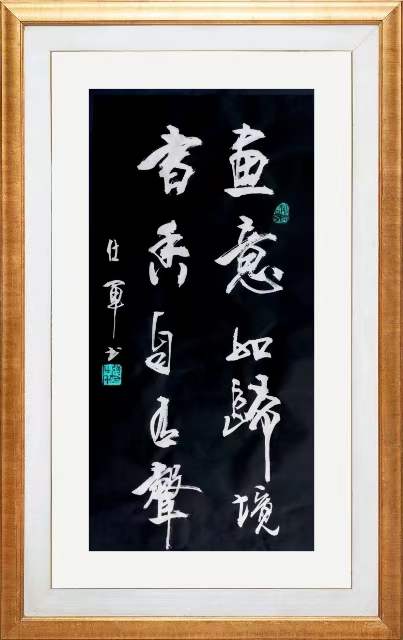 畫意如歸境
書香自有聲
仕軍书